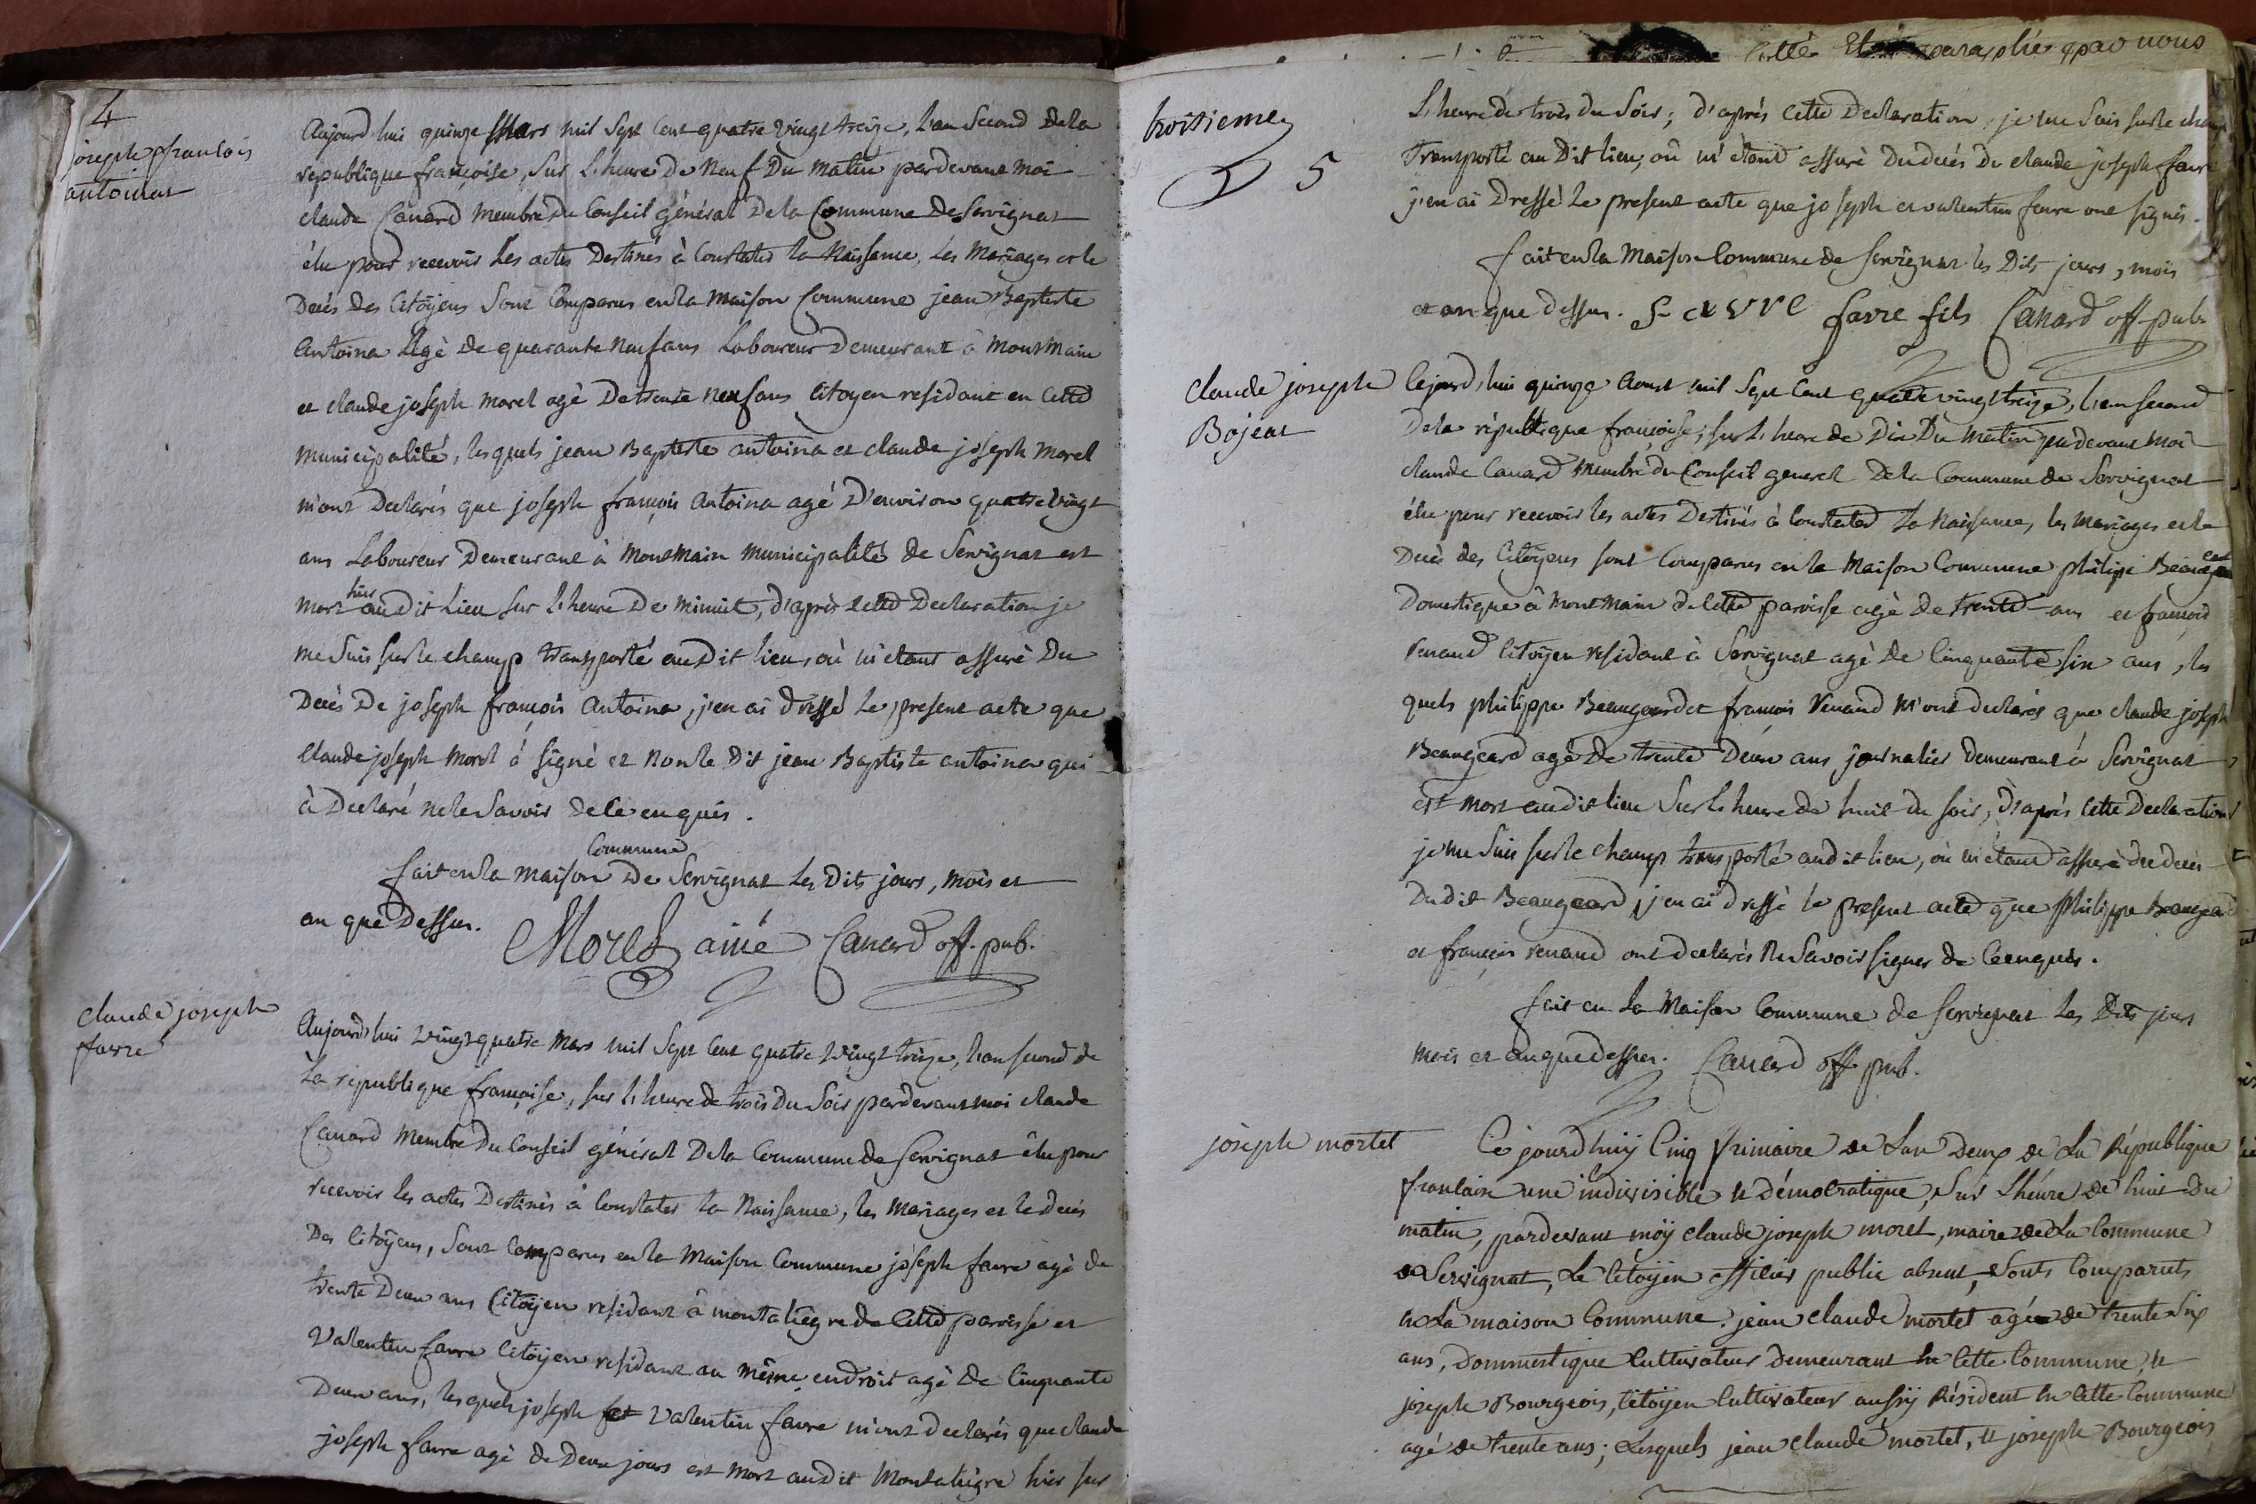 4
joseph francois
antoinat
Aujourd'hui quinze Mars mil Sept Cent quatre vingt treize, l'an Second de la
république françoise, Sur L'heure De Neuf Du Matin pardevant moi
claude Canard membre du Conseil général De la Commune de Servignat
élu pour recevoir Les actes Destinés à Constater la Naissance, Les Mariages et le
Decès des Citoÿens Sont Comparus en la Maison Commune jean Baptiste
Antoina Agé de quarante Neuf ans Laboureur Demeurant à MontMain
et claude joseph morel agé De trente neuf ans Citoyen residant en Cette
Municipalité, lesquels jean Baptiste antoina et claude joseph Morel
m'ont Declarés que joseph françois Antoina agé D'environ quatre vingt
ans Laboureur Demeurant à MontMain Municipalité de Servignat est
mort hier audit Lieu Sur L'heure De Minuit, d'après Cette Declaration je
me Suis Sur le champ transporté audit lieu, où m'étant assuré Du
Decès De joseph françois Antoina, j'en ai dressé Le present acte que
Claude joseph Morel à Signé et Non le Dit jean Baptiste antoina qui
à Declaré ne le Savoir de Ce enquis.
fait en la Maison Commune De Servignat Les Dits jours, Mois et
an que Dessus. Morel ainé Canard off. pub.
Claude joseph
favre
Aujourd'hui vingt quatre Mars mil Sept Cent quatre vingt treize, l'an Second de
La république françoise, Sur L'heure de trois Du Soir pardevant moi claude
Canard Membre Du Conseil général De la Commune de Servignat élu pour
recevoir les actes Destinés à Constater la Naissance, les Mariages et le decès
Des Citoÿens, Sont Comparus en la Maison Commune joseph favre agé de
trente Deux ans Citoÿen residant à montaliègre de Cette paroisse et
Valentin favre Citoÿen residant au même endroit agé de Cinquante
Deux ans, lesquels joseph et Valentin favre m'ont declarés que claude
joseph favre agé de Deux jours est Mort audit Montaliègre hier sur
troisieme
5
cotté Et paraphé par nous
L'heure de trois du Soir; d'après Cette Declaration je me Suis Sur le champ
Transporté au Dit lieu, où m'étant assuré du decès De claude joseph favre
j'en ai Dressé Le present acte que joseph et valentin favre ont signés.
fait en la Maison Commune de Servignat les Dits jours, mois
et an que dessus. favre favre fils Canard off. pub.
Claude joseph
Bojeat
Cejourd'hui quinze Aoust mil Sept Cent quatre vingt treize, l'an Second
De la république françoise, sur L'heure de Dix Du Matin pardevant moi
claude Canard Membre du Conseil general De la Commune de Servignat
élu pour recevoir les actes Destinés à Constater La Naissance, les Mariages et le
Decès des Citoÿens sont Comparus en la Maison Commune philippe
Domestique à MontMain de Cette paroisse agé de trente ans et françois
renand Citoyen residant à Servignat agé de Cinquante six ans, les
quels philippe Beaugeard et françois renand m'ont declarés que claude joseph
Beaugeard agé De trente Deux ans journalier demeurant à Servignat
est mort audit lieu Sur L'heure de huit du soir, d'après Cette Declaration
je me Suis sur le champ transporté audit lieu, où m'étant assuré du decès
Dudit Beaugeard, j'en ai dressé le present acte que philippe Beaugeard
et françois renand ont declarés Ne Savoir signer de Ce enquis.
fait en La Maison Commune de Servignat Les Dits jours
Mois et an que dessus. Canard off. pub.
joseph mortel
Ce jourd'huÿ Cinq frimaire de L'an Deux de La République
francaise une indivisible et démocratique, Sur L'héure de huit Du
matin, pardevant moÿ claude joseph morel, maire de La Commune
de Servignat, Le Citoÿen officier public absent, Sonts Comparuts
en La maison Commune. jean claude mortel agé de trente Six
ans, Dommestique Cultivateur demeurant en Cette Commune, et
joseph Bourgeois, Citoÿen Cultivateur aussÿ Résident en Cette Commune
agé de trente ans; Lesquels jean claude mortel, et joseph Bourgeois